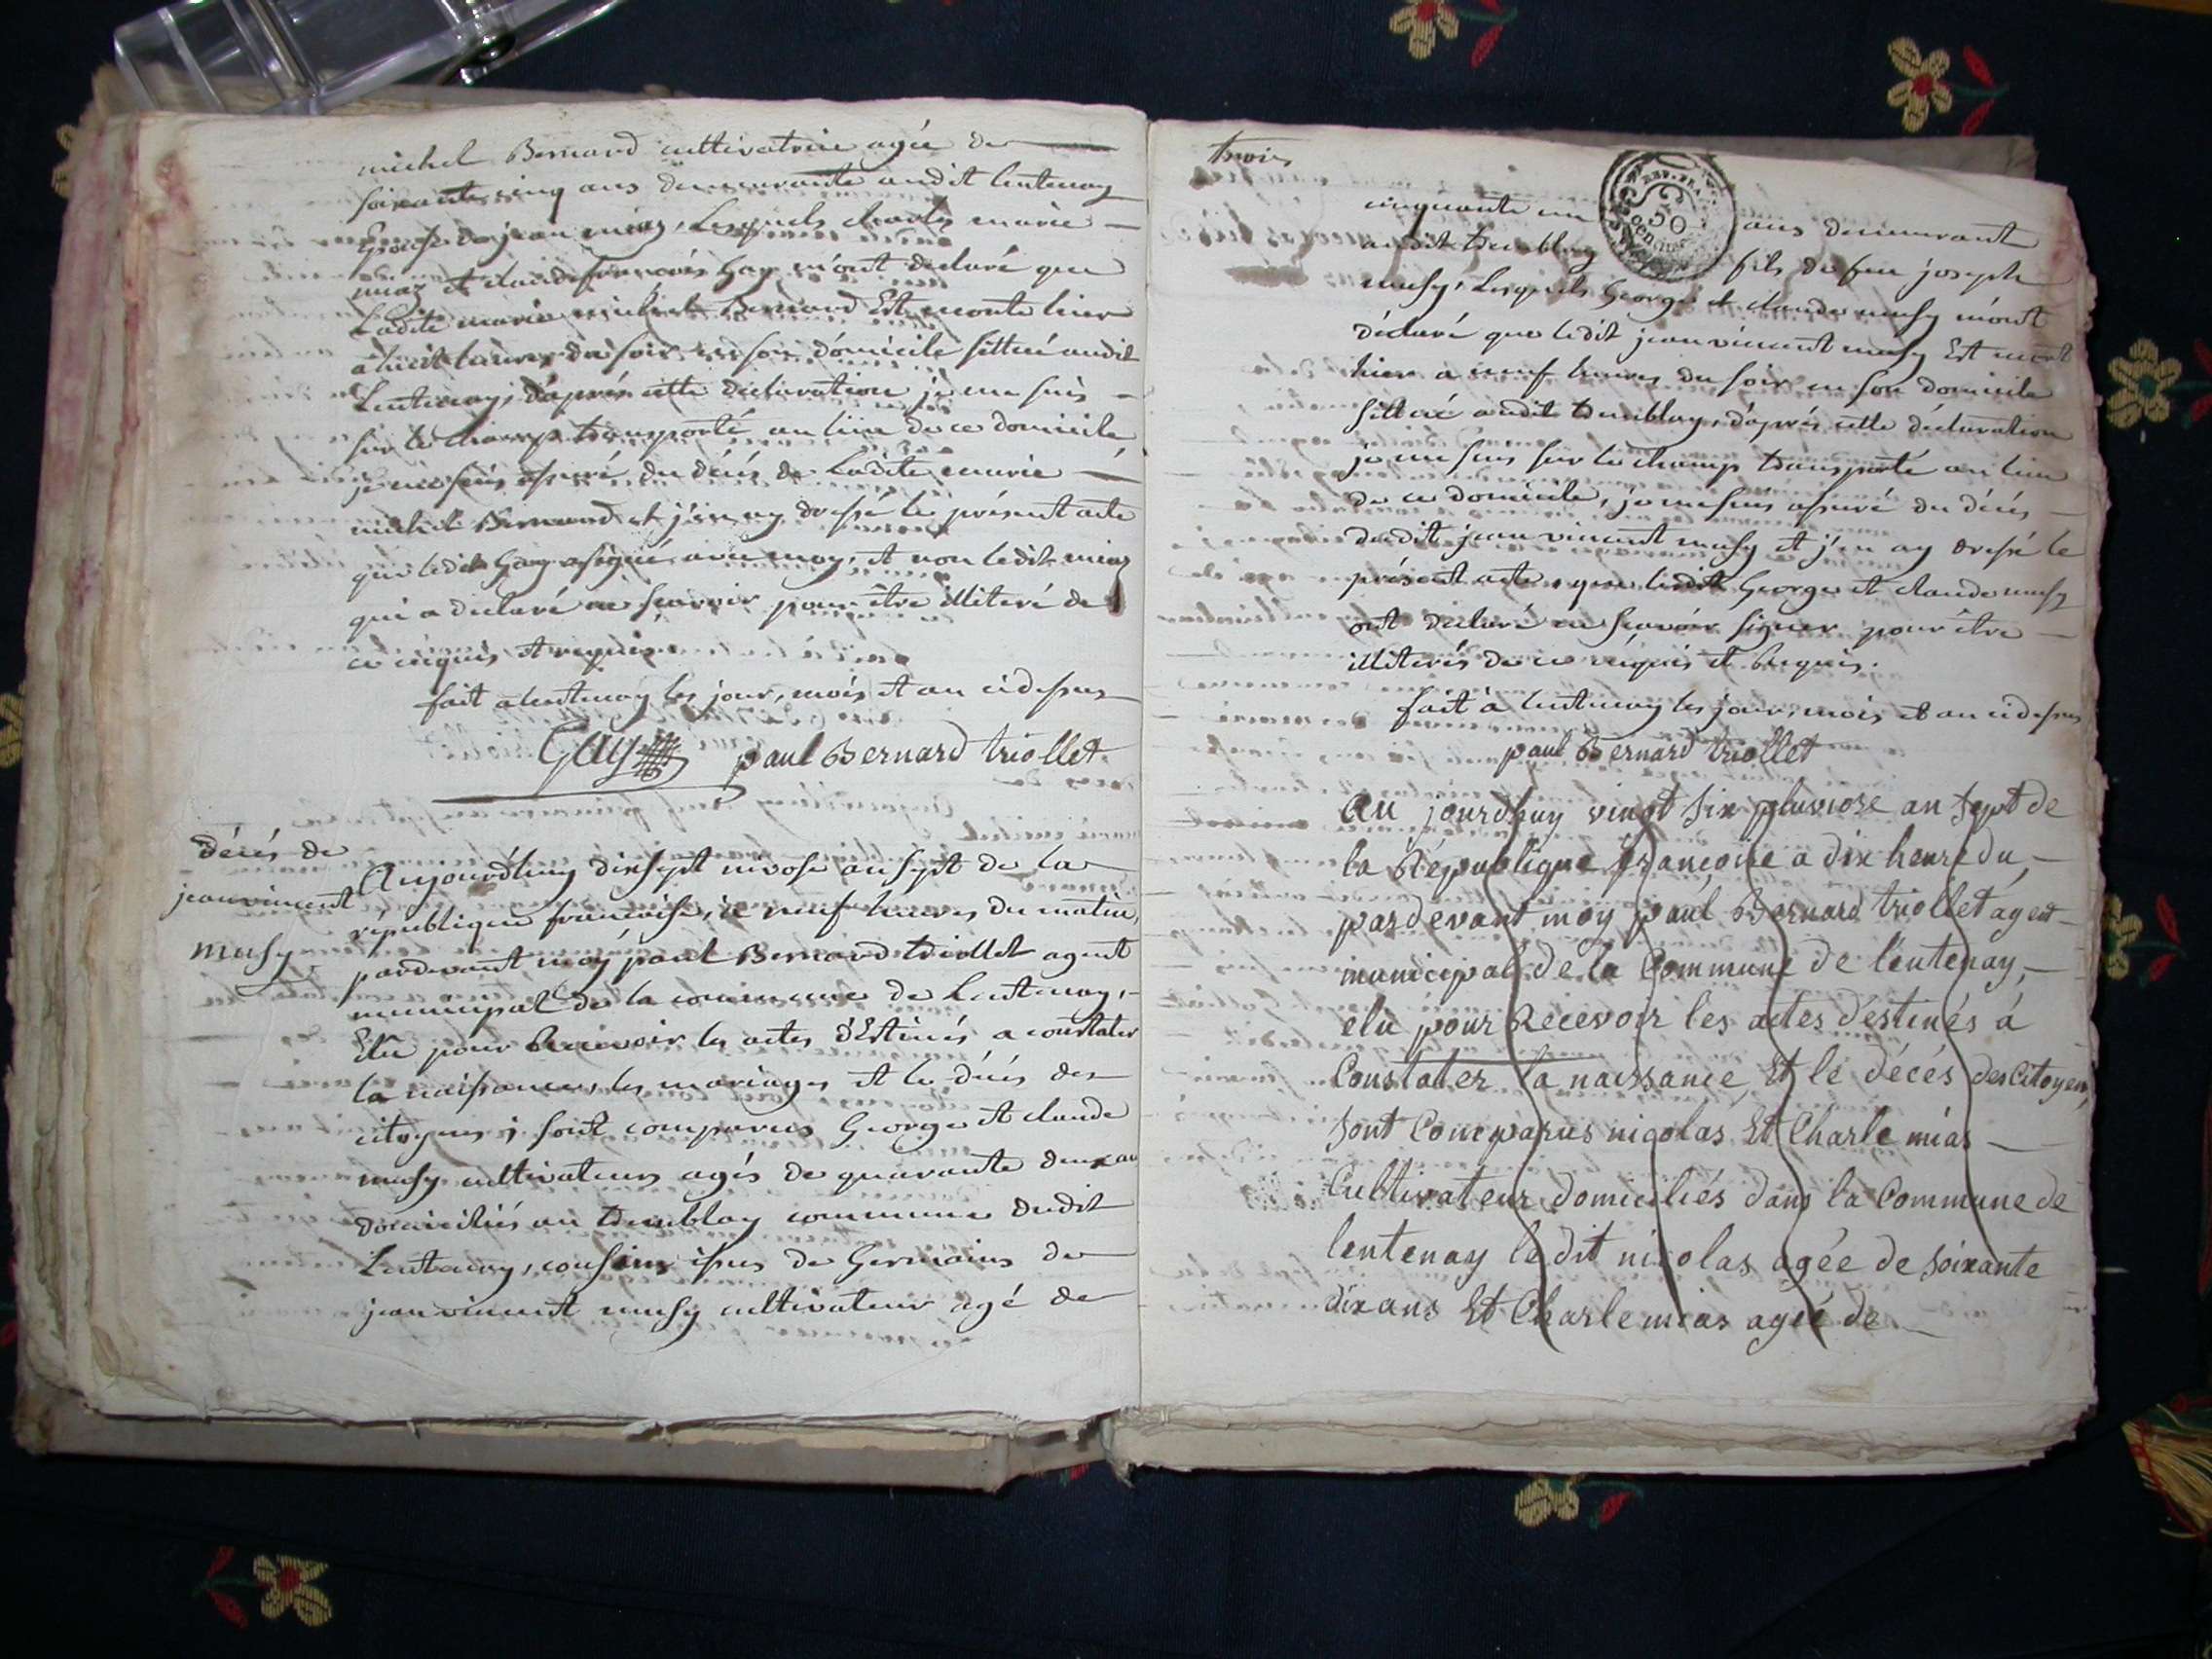 michel Bernard cultivatrice agée de
soixante cinq ans demeurante audit lentenay
Epouse de jean miaz, Lesquels charles marie
miaz et claude françois Gay m'ont declaré que
Ladite marie michel Bernard Est morte hier
a huit heures du soir en son domicile sittué audit
Lentenay, d'aprés cette declaration je me suis
sur le champ transporté au lieu de ce domicile
je me suis assuré du décés de Ladite marie
michel Bernard et j'en ay dressé le présent acte
que ledit Gay a signé avec moy, et non ledit miaz
qui a declaré ne sçavoir pour être illiteré de
ce enquis et requis.
fait a lentenay les jour, mois et an cidessus
Gay paul Bernard triollet
décés de
jean vincent
musy
Aujourd'huy dix sept nivose an sept de la
république francoise, a neuf heures du matin,
pardevant moy paul Bernard triollet agent
municipal de la commune de Lentenay,
Elû pour Recevoir les actes d'Estinés a constater
la naissance, les mariages et le décés des
citoyens; sont comparus George et claude
musy cultivateurs agés de quarante deux an
domiciliés au tremblay commune dudit
Lentenay, cousins issus de Germains de
jean vincent musy cultivateur agé de
trois
cinquante un ans demeurant
audit tremblay fils de feu joseph
musy, Lesquels George et claude musy m'ont
déclaré que ledit jean vincent musy Est mort
hier a neuf heures du soir en son domicile
sittué audit tremblay, d'aprés cette déclaration
je me suis sur le champ transporté au lieu
de ce domicile, je me suis assuré du décés
dudit jean vincent musy et j'en ay dressé le
présent acte, que ledit George et claude musy
ont declaré ne sçavoir signer pour être
illiterés de ce enquis et Requis.
fait à lentenay les jour, mois et an cidessus
paul Bernard triollet
Au jourdhuy vingt six pluviose an sept de
la République françoise a dix heure du
pardevant moy paul Bernard triollet agent
municipal de la Commune de lentenay,
elu pour Recevoir les actes déstinés à
Constater la naissance Et le décés des Citoyens,
sont Comparus nicolas Et Charle mias
Cultivateur domiciliés dans la Commune de
lentenay le dit nicolas agée de soixante
dix ans Et Charle mias agée de